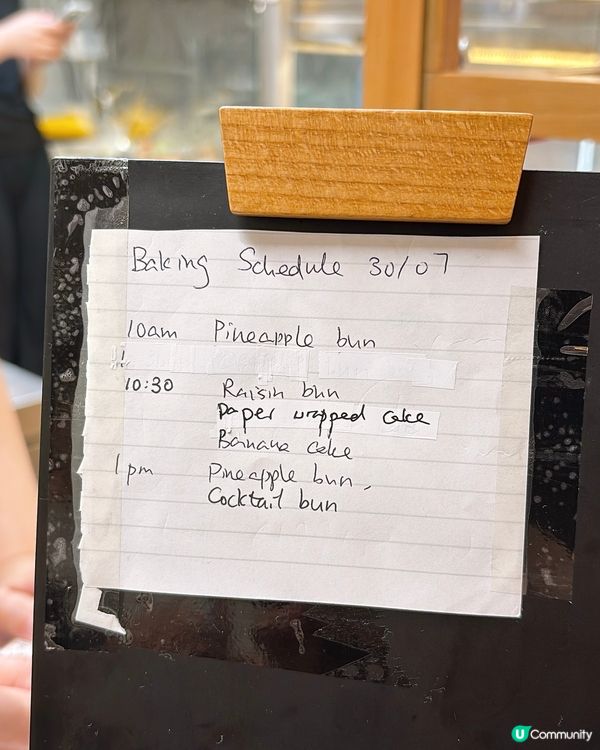 Baking Schedule 30/07
10am Pineapple bun
10:30 Raisin bun
Paper wrapped cake
Banana cake
1pm Pineapple bun,
Cocktail bun
U Community